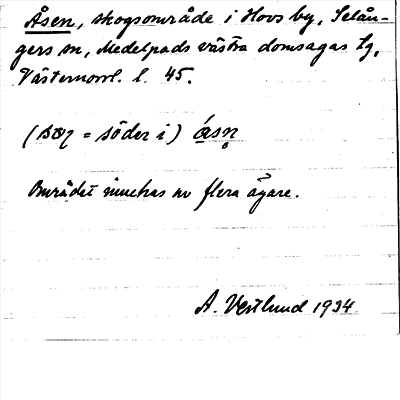 Åsen, skogsområde i Hovs by, Selån-
gers sn, Medelpads västra domsagas tg,
Västernorrl. l. 45.
( = söder i) åsn̥
Området innehas av flera ägare.
A. Vestlund 1934